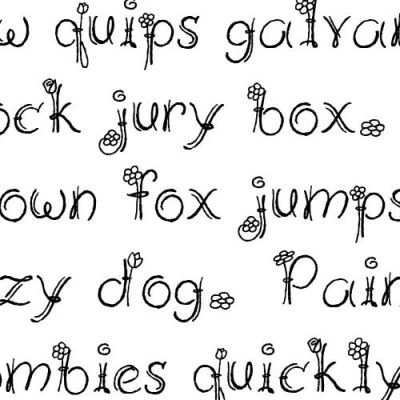 w quips galvan
ock jury box.
own fox jumps
zy dog. Pain
ombies quickly